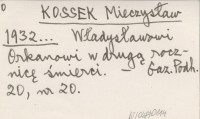 KOSSEK Mieczysław
1932... Władysławowi
Orkanowi w drugą rocz-
nicę śmierci. – Gaz. Podh.
20, nr 20.